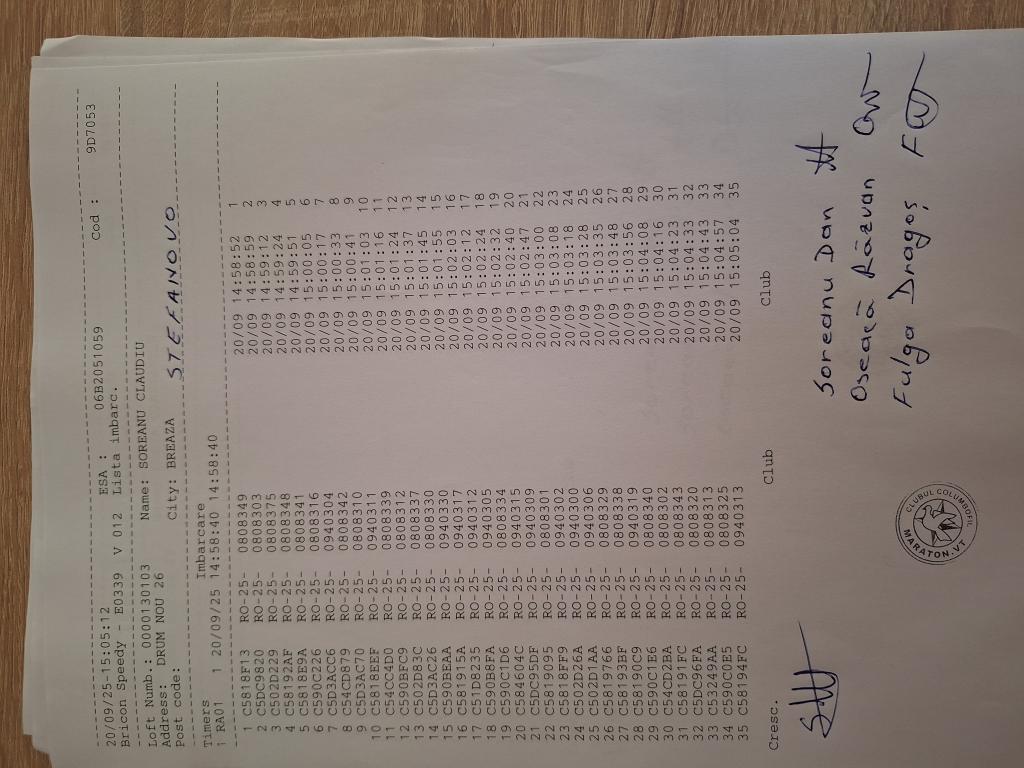 20/09/25-15:05:12
Bricon Speedy - E0339 V 012 ESA : 06B2051059 Cod : 9D7053
Lista imbarc.
Loft Numb.: 0000130103 Name: SOREANU CLAUDIU
Address: DRUM NOU 26
Post code: City: BREAZA STEFANOVO
Timers Imbarcare
1 RA01 1 20/09/25 14:58:40 14:58:40
1 C5818F13 RO-25- 0808349 20/09 14:58:52 1
2 C5DC9820 RO-25- 0808303 20/09 14:58:59 2
3 C502D229 RO-25- 0808375 20/09 14:59:12 3
4 C58192AF RO-25- 0808348 20/09 14:59:24 4
5 C5818E9A RO-25- 0808341 20/09 14:59:51 5
6 C590C226 RO-25- 0808316 20/09 15:00:05 6
7 C5D3ACC6 RO-25- 0940304 20/09 15:00:17 7
8 C54CD879 RO-25- 0808342 20/09 15:00:33 8
9 C5D3AC70 RO-25- 0808310 20/09 15:00:41 9
10 C5818EEF RO-25- 0940311 20/09 15:01:03 10
11 C54CC4D0 RO-25- 0808339 20/09 15:01:16 11
12 C590BFC9 RO-25- 0808312 20/09 15:01:24 12
13 C502D83C RO-25- 0808337 20/09 15:01:37 13
14 C5D3AC26 RO-25- 0808330 20/09 15:01:45 14
15 C590BEAA RO-25- 0940330 20/09 15:01:55 15
16 C581915A RO-25- 0940317 20/09 15:02:03 16
17 C51D8235 RO-25- 0940312 20/09 15:02:12 17
18 C590B8FA RO-25- 0940305 20/09 15:02:24 18
19 C590C1D6 RO-25- 0808334 20/09 15:02:32 19
20 C584604C RO-25- 0940315 20/09 15:02:40 20
21 C5DC95DF RO-25- 0940309 20/09 15:02:47 21
22 C5819095 RO-25- 0808301 20/09 15:03:00 22
23 C5818FF9 RO-25- 0940302 20/09 15:03:08 23
24 C502D26A RO-25- 0940300 20/09 15:03:18 24
25 C502D1AA RO-25- 0940306 20/09 15:03:28 25
26 C5819766 RO-25- 0808329 20/09 15:03:35 26
27 C58193BF RO-25- 0808338 20/09 15:03:48 27
28 C58190C9 RO-25- 0940319 20/09 15:03:56 28
29 C590C1E6 RO-25- 0808340 20/09 15:04:08 29
30 C54CD2BA RO-25- 0808302 20/09 15:04:16 30
31 C58191FC RO-25- 0808343 20/09 15:04:23 31
32 C5DC96FA RO-25- 0808320 20/09 15:04:33 32
33 C53249AA RO-25- 0808313 20/09 15:04:43 33
34 C590C0E5 RO-25- 0808325 20/09 15:04:57 34
35 C58194FC RO-25- 0940313 20/09 15:05:04 35
Cresc. Club Club
Soreanu Dan
Oseacă Răzvan
Fulga Dragoș
CLUBUL COLUMBOFIL
MARATON.VT